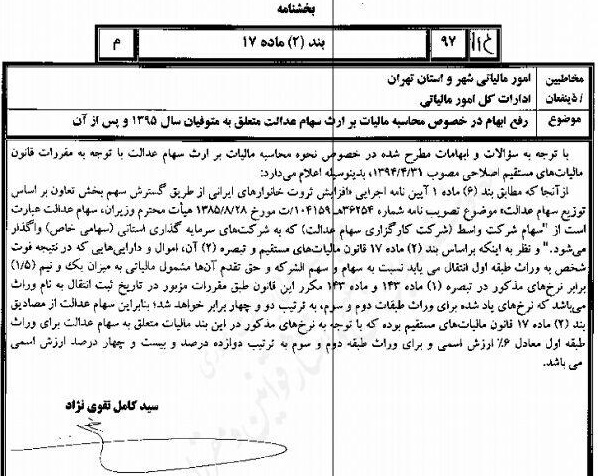 بخشنامه
۱۶۱ ۹۷ بند (۲) ماده ۱۷ م
مخاطبین امور مالیاتی شهر و استان تهران
/ ذینفعان ادارات کل امور مالیاتی
موضوع رفع ابهام در خصوص محاسبه مالیات بر ارث سهام عدالت متعلق به متوفیان سال ۱۳۹۵ و پس از آن
با توجه به سؤالات و ابهامات مطرح شده در خصوص نحوه محاسبه مالیات بر ارث سهام عدالت با توجه به مقررات قانون
مالیات‌های مستقیم اصلاحی مصوب ۱۳۹۴/۴/۳۱، بدینوسیله اعلام می‌دارد:
ازآنجا که مطابق بند (۶) ماده ۱ آیین نامه اجرایی «افزایش ثروت خانوارهای ایرانی از طریق گسترش سهم بخش تعاون بر اساس
توزیع سهام عدالت» موضوع تصویب نامه شماره ۳۶۲۵۴هـ/۱۰۴۱۵۹ت مورخ ۱۳۸۵/۸/۲۸ هیأت محترم وزیران، سهام عدالت عبارت
است از "سهام شرکت واسط (شرکت کارگزاری سهام عدالت) که به شرکت‌های سرمایه گذاری استانی (سهامی خاص) واگذار
می‌شود." و نظر به اینکه براساس بند (۲) ماده ۱۷ قانون مالیات‌های مستقیم و تبصره (۲) آن، اموال و دارایی‌هایی که در نتیجه فوت
شخص به وراث طبقه اول انتقال می یابد نسبت به سهام و سهم الشرکه و حق تقدم آن‌ها مشمول مالیاتی به میزان یک و نیم (۱/۵)
برابر نرخ‌های مذکور در تبصره (۱) ماده ۱۴۳ و ماده ۱۴۳ مکرر این قانون طبق مقررات مزبور در تاریخ ثبت انتقال به نام وراث
می‌باشد که نرخ‌های یاد شده برای وراث طبقات دوم و سوم، به ترتیب دو و چهار برابر خواهد شد؛ بنابراین سهام عدالت از مصادیق
بند (۲) ماده ۱۷ قانون مالیات‌های مستقیم بوده که با توجه به نرخ‌های مذکور در این بند مالیات متعلق به سهام عدالت برای وراث
طبقه اول معادل ۶% ارزش اسمی و برای وراث طبقه دوم و سوم به ترتیب دوازده درصد و بیست و چهار درصد ارزش اسمی
می باشد.
سید کامل تقوی نژاد